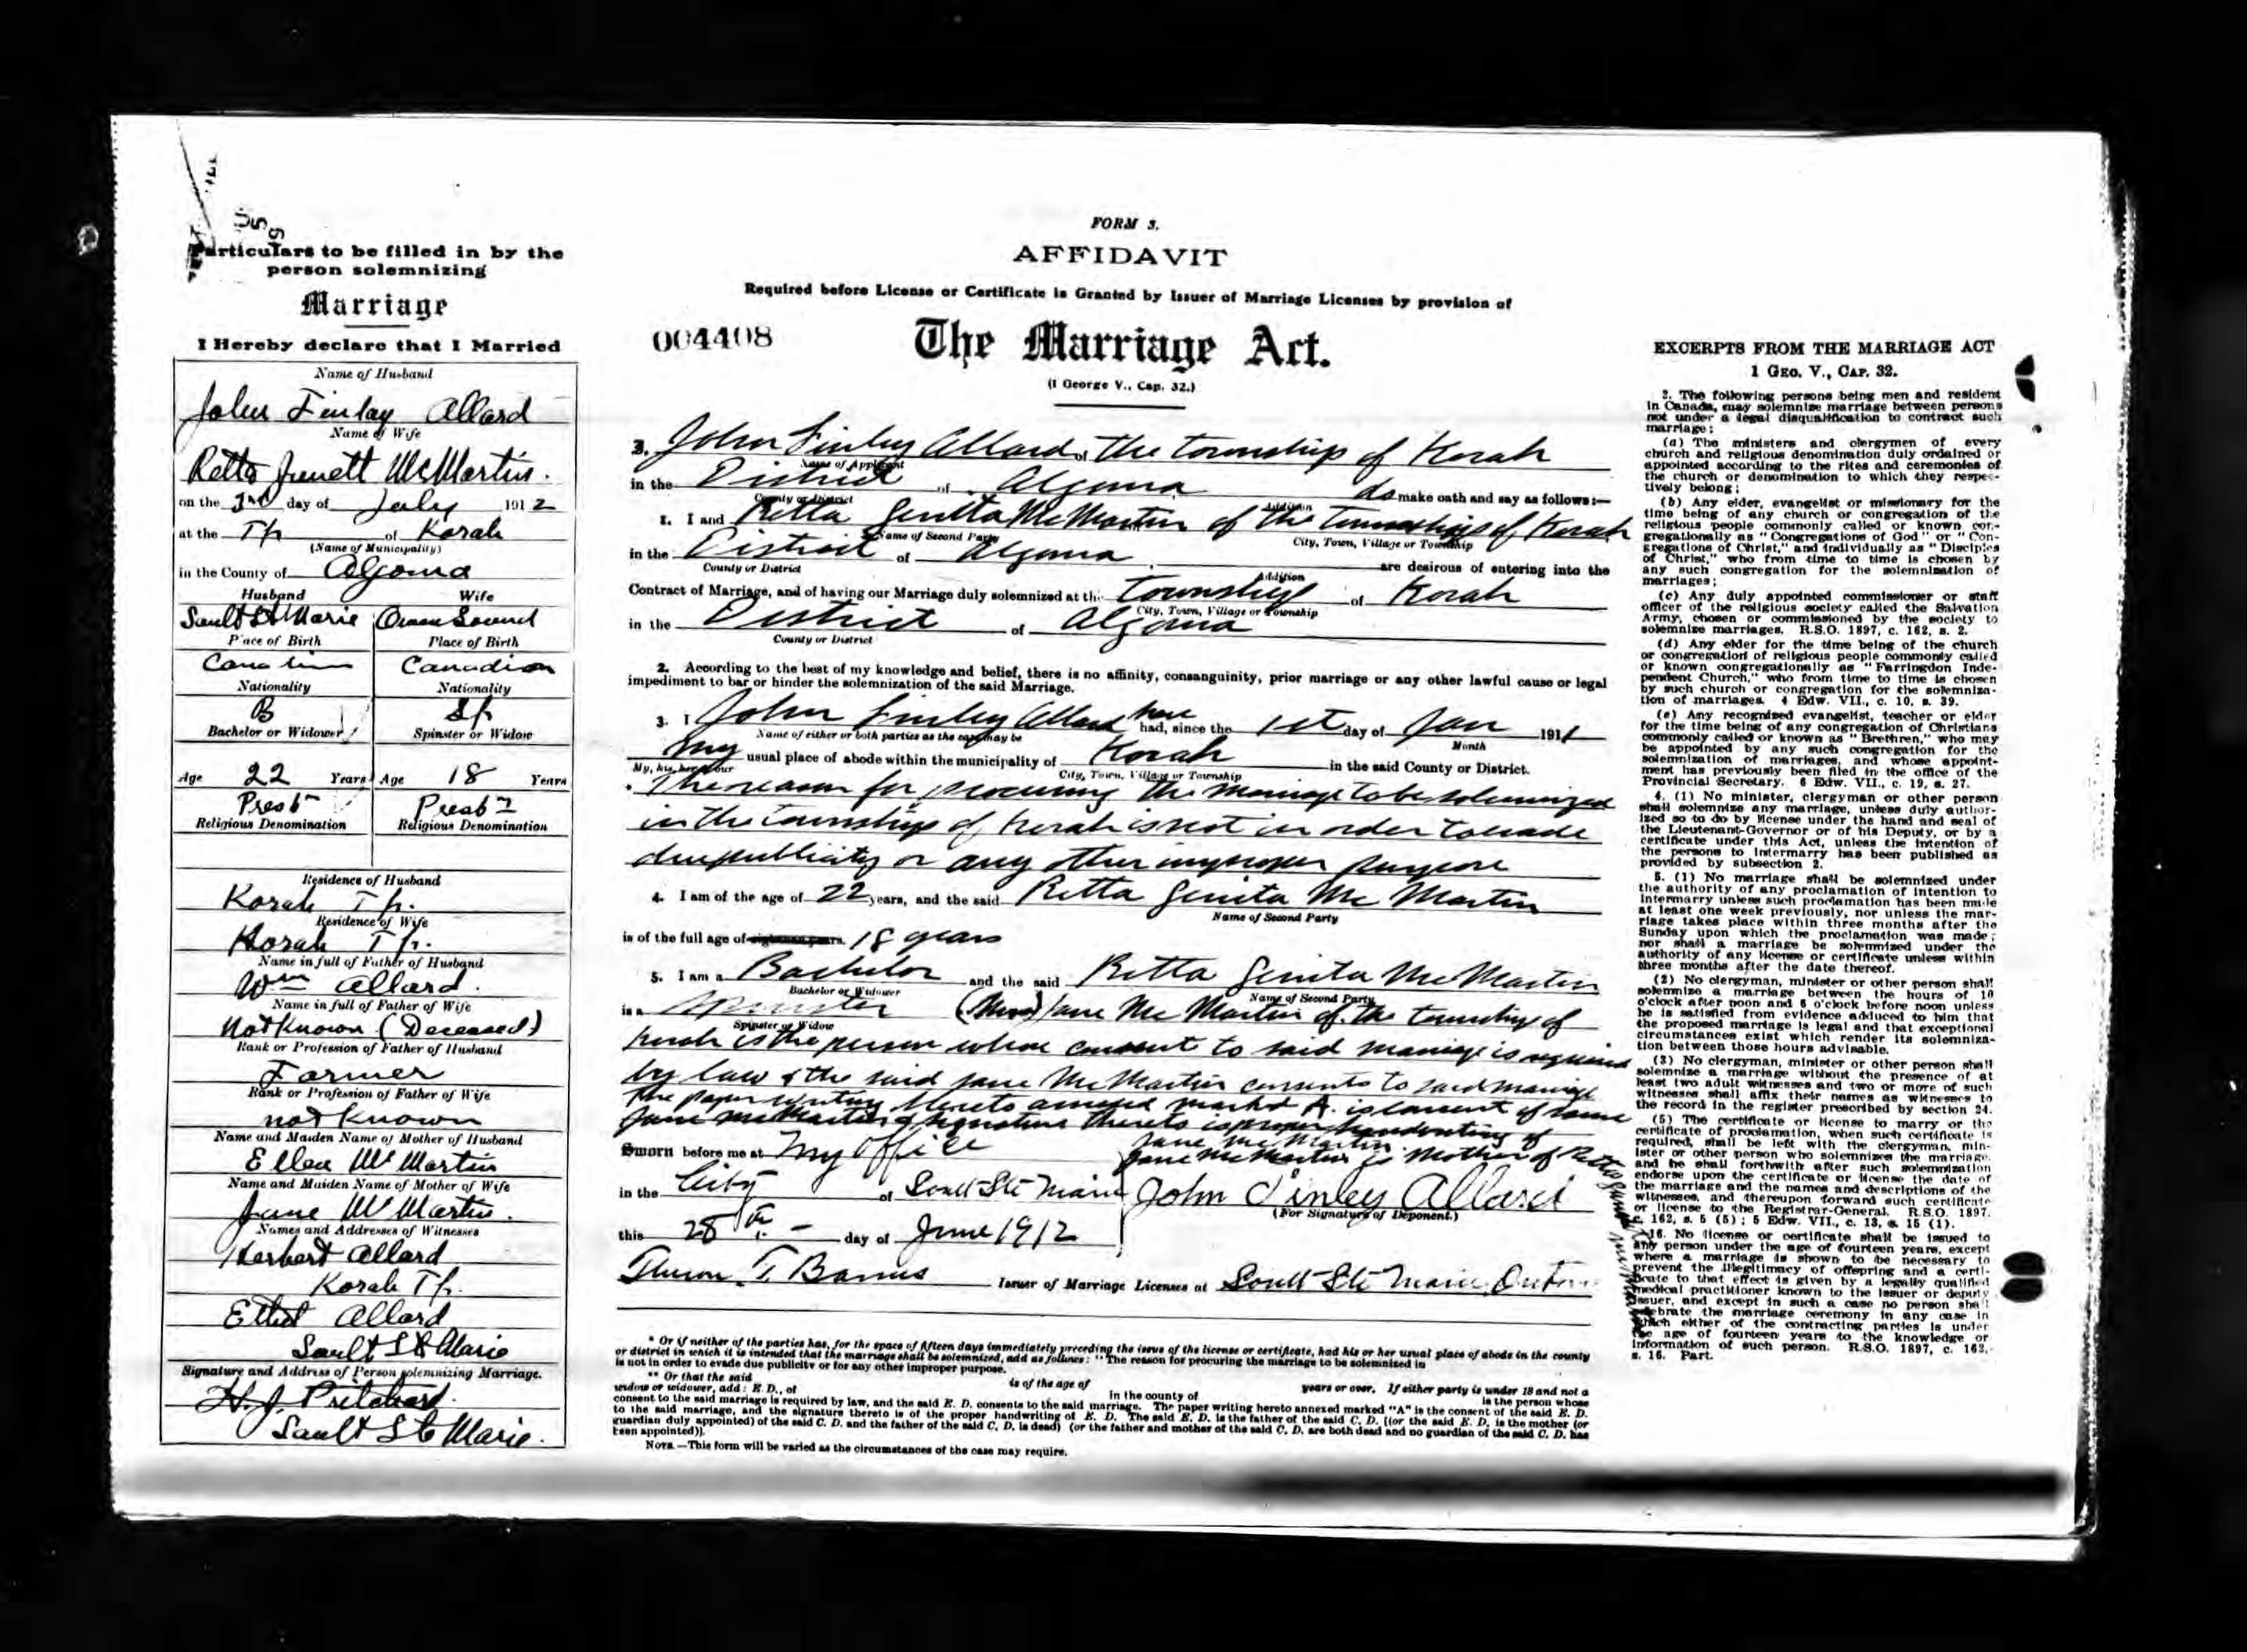 Particulars to be filled in by the
person solemnizing
Marriage
I Hereby declare that I Married
Name of Husband
John Finlay Allard
Name of Wife
Retta Junett McMartin.
on the 3rd day of July 1912
at the Tp of Korah
(Name of Municipality)
in the County of Algoma
Husband Wife
Sault St Marie Owen Sound
Place of Birth Place of Birth
Canadian Canadian
Nationality Nationality
B Sp
Bachelor or Widower Spinster or Widow
Age 22 Years Age 18 Years
Presbn Presbn
Religious Denomination Religious Denomination
Residence of Husband
Korah Tp.
Residence of Wife
Korah Tp.
Name in full of Father of Husband
Wm Allard.
Name in full of Father of Wife
Not Known (Deceased)
Rank or Profession of Father of Husband
Farmer
Rank or Profession of Father of Wife
not Known
Name and Maiden Name of Mother of Husband
Ellen McMartin
Name and Maiden Name of Mother of Wife
Jane McMartin.
Names and Addresses of Witnesses
Herbert Allard
Korah Tp.
Ethel Allard
Sault St Marie
Signature and Address of Person solemnizing Marriage.
H. J. Pritchard.
Sault St Marie.
FORM 3.
AFFIDAVIT
Required before License or Certificate is Granted by Issuer of Marriage Licenses by provision of
004408
The Marriage Act.
(1 George V., Cap. 32.)
John Finley Allard, the township of Korah
Name of Applicant
in the District of Algoma do make oath and say as follows:—
County or District Addition
1. I and Retta Genitta McMartin of the Township of Korah
Name of Second Party City, Town, Village or Township
in the District of Algoma are desirous of entering into the
County or District Addition
Contract of Marriage, and of having our Marriage duly solemnized at the township of Korah
City, Town, Village or Township
in the District of Algoma
County or District
2. According to the best of my knowledge and belief, there is no affinity, consanguinity, prior marriage or any other lawful cause or legal
impediment to bar or hinder the solemnization of the said Marriage.
3. I John Finley Allard have had, since the 1st day of Jan 1911
Name of either or both parties as the case may be Month
my usual place of abode within the municipality of Korah in the said County or District.
My, his, her, our City, Town, Village or Township
The reason for procuring the marriage to be solemnized
in the township of Korah is not in order to evade
due publicity or any other improper purpose
4. I am of the age of 22 years, and the said Retta Genita McMartin
Name of Second Party
is of the full age of eighteen years. 18 years
5. I am a Bachelor and the said Retta Genita McMartin
Bachelor or Widower Name of Second Party
is a Spinster (Mrs) Jane McMartin of the township of
Spinster or Widow
Korah is the person whose consent to said marriage is required
by law & the said Jane McMartin consents to said marriage
The paper writing hereto annexed marked A. is consent of said
Jane McMartin & signature thereto is proper handwriting of
Jane McMartin.
Jane McMartin is mother of Retta
Sworn before me at My Office
in the City of Sault Ste Marie John Finley Allard
(For Signature of Deponent.)
this 28th day of June 1912
Issuer of Marriage Licenses at Sault Ste Marie, Ontario
* Or if neither of the parties has, for the space of fifteen days immediately preceding the issue of the license or certificate, had his or her usual place of abode in the county
or district in which it is intended that the marriage shall be solemnized, add as follows: "The reason for procuring the marriage to be solemnized in
is not in order to evade due publicity or for any other improper purpose.
** Or that the said is of the age of years or over. If either party is under 18 and not a
widow or widower, add: E. D., of in the county of is the person whose
consent to the said marriage is required by law, and the said E. D. consents to the said marriage. The paper writing hereto annexed marked "A" is the consent of the said E. D.
to the said marriage, and the signature thereto is of the proper handwriting of E. D. The said E. D. is the father of the said C. D. ((or the said E. D. is the mother (or
guardian duly appointed) of the said C. D. and the father of the said C. D. is dead) (or the father and mother of the said C. D. are both dead and no guardian of the said C. D. has
been appointed)).
NOTE.—This form will be varied as the circumstances of the case may require.
EXCERPTS FROM THE MARRIAGE ACT
1 GEO. V., CAP. 32.
2. The following persons being men and resident
in Canada, may solemnize marriage between persons
not under a legal disqualification to contract such
marriage:
(a) The ministers and clergymen of every
church and religious denomination duly ordained or
appointed according to the rites and ceremonies of
the church or denomination to which they respec-
tively belong;
(b) Any elder, evangelist or missionary for the
time being of any church or congregation of the
religious people commonly called or known con-
gregationally as "Congregations of God" or "Con-
gregations of Christ," and individually as "Disciples
of Christ," who from time to time is chosen by
any such congregation for the solemnization of
marriages;
(c) Any duly appointed commissioner or staff
officer of the religious society called the Salvation
Army, chosen or commissioned by the society to
solemnize marriages. R.S.O. 1897, c. 162, s. 2.
(d) Any elder for the time being of the church
or congregation of religious people commonly called
or known congregationally as "Farringdon Inde-
pendent Church," who from time to time is chosen
by such church or congregation for the solemniza-
tion of marriages. 4 Edw. VII., c. 10, s. 39.
(e) Any recognized evangelist, teacher or elder
for the time being of any congregation of Christians
commonly called or known as "Brethren," who may
be appointed by any such congregation for the
solemnization of marriages, and whose appoint-
ment has previously been filed in the office of the
Provincial Secretary. 6 Edw. VII., c. 19, s. 27.
4. (1) No minister, clergyman or other person
shall solemnize any marriage, unless duly author-
ized so to do by license under the hand and seal of
the Lieutenant-Governor or of his Deputy, or by a
certificate under this Act, unless the intention of
the persons to intermarry has been published as
provided by subsection 2.
5. (1) No marriage shall be solemnized under
the authority of any proclamation of intention to
intermarry unless such proclamation has been made
at least one week previously, nor unless the mar-
riage takes place within three months after the
Sunday upon which the proclamation was made;
nor shall a marriage be solemnized under the
authority of any license or certificate unless within
three months after the date thereof.
(2) No clergyman, minister or other person shall
solemnize a marriage between the hours of 10
o'clock after noon and 6 o'clock before noon unless
he is satisfied from evidence adduced to him that
the proposed marriage is legal and that exceptional
circumstances exist which render its solemniza-
tion between those hours advisable.
(3) No clergyman, minister or other person shall
solemnize a marriage without the presence of at
least two adult witnesses and two or more of such
witnesses shall affix their names as witnesses to
the record in the register prescribed by section 24.
(5) The certificate or license to marry or the
certificate of proclamation, when such certificate is
required, shall be left with the clergyman, min-
ister or other person who solemnizes the marriage.
and he shall forthwith after such solemnization
endorse upon the certificate or license the date of
the marriage and the names and descriptions of the
witnesses, and thereupon forward such certificate
or license to the Registrar-General. R.S.O. 1897.
c. 162, s. 5 (5); 5 Edw. VII., c. 13, s. 15 (1).
16. No license or certificate shall be issued to
any person under the age of fourteen years, except
where a marriage is shown to be necessary to
prevent the illegitimacy of offspring and a certi-
ficate to that effect is given by a legally qualified
medical practitioner known to the issuer or deputy
issuer, and except in such a case no person shall
celebrate the marriage ceremony in any case in
which either of the contracting parties is under
the age of fourteen years to the knowledge or
information of such person. R.S.O. 1897, c. 162,
s. 16. Part.